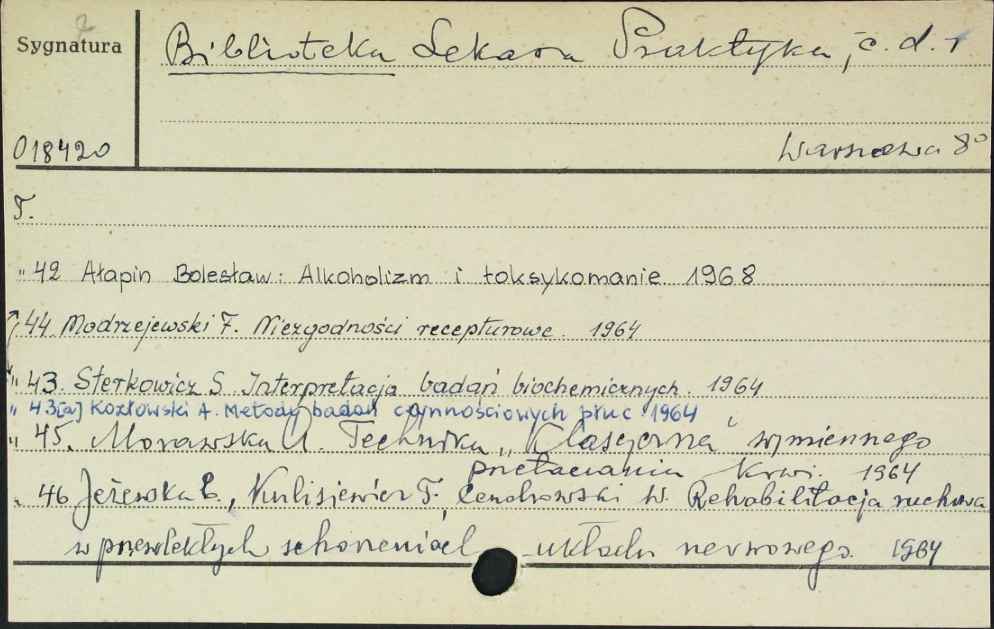 Sygnatura
Biblioteka Lekarza Praktyka, c.d. 1
018420
Warszawa 8°
T.
" 42 Ałapin Bolesław: Alkoholizm i toksykomanie 1968
44 Modrzejewski F. Niezgodności recepturowe. 1964
" 43. Sterkowicz S. Interpretacja badań biochemicznych. 1964
" 43[a] Kozłowski A. Metody badań czynnościowych płuc 1964
" 45. Morawska U. Technika "Klasyczna" wymiennego
przetaczania krwi. 1964
" 46 Jeżewska E., Kulisiewicz T., Cendrowski W. Rehabilitacja ruchowa
w przewlekłych schorzeniach układu nerwowego. 1964